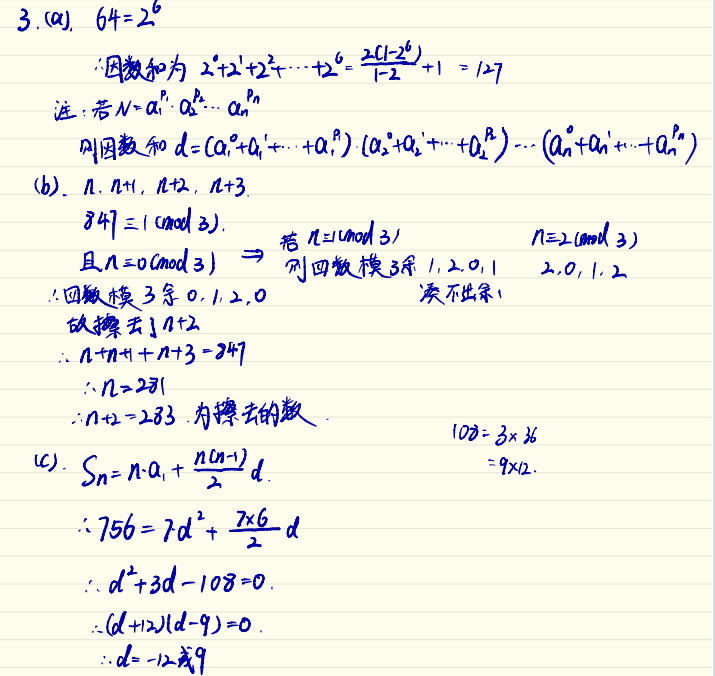 3.(a). 64=2^6
∴因数和为 2^0+2^1+2^2+…+2^6=\frac{2(1-2^6)}{1-2}+1 =127
注:若N=a_1^{P_1}·a_2^{P_2}…a_n^{P_n}
则因数和 d=(a_1^0+a_1^1+…+a_1^{P_1})·(a_2^0+a_2^1+…+a_2^{P_2})…(a_n^0+a_n^1+…+a_n^{P_n})
(b). n, n+1, n+2, n+3.
847≡1(mod 3).
且n≡0(mod 3) ⇒ 若 n≡1(mod 3) n≡2(mod 3)
则四数模3余 1,2,0,1 2,0,1,2
∴四数模3余0,1,2,0 凑不出余1
故擦去了n+2
∴n+n+1+n+3=847
∴n=281
∴n+2=283 为擦去的数.
108=3×36
=9×12.
(c). S_n=n·a_1+\frac{n(n-1)}{2}d.
∴756=7·d^2+\frac{7×6}{2}d
∴d^2+3d-108=0.
∴(d+12)(d-9)=0.
∴d=-12或9